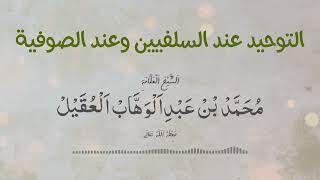 التوحيد عند السلفيين وعند الصوفية
الشَّيْخُ العَلَّامَة
مُحَمَّدُ بْنُ عَبْدِ الْوَهَّابِ الْعُقَيْلْ
حفظه الله تعالى